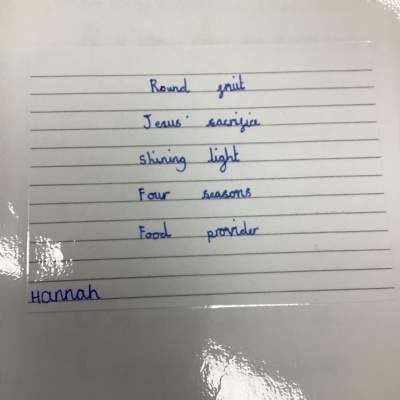 Round fruit
Jesus' sacrifice
Shining light
Four seasons
Food provider
Hannah